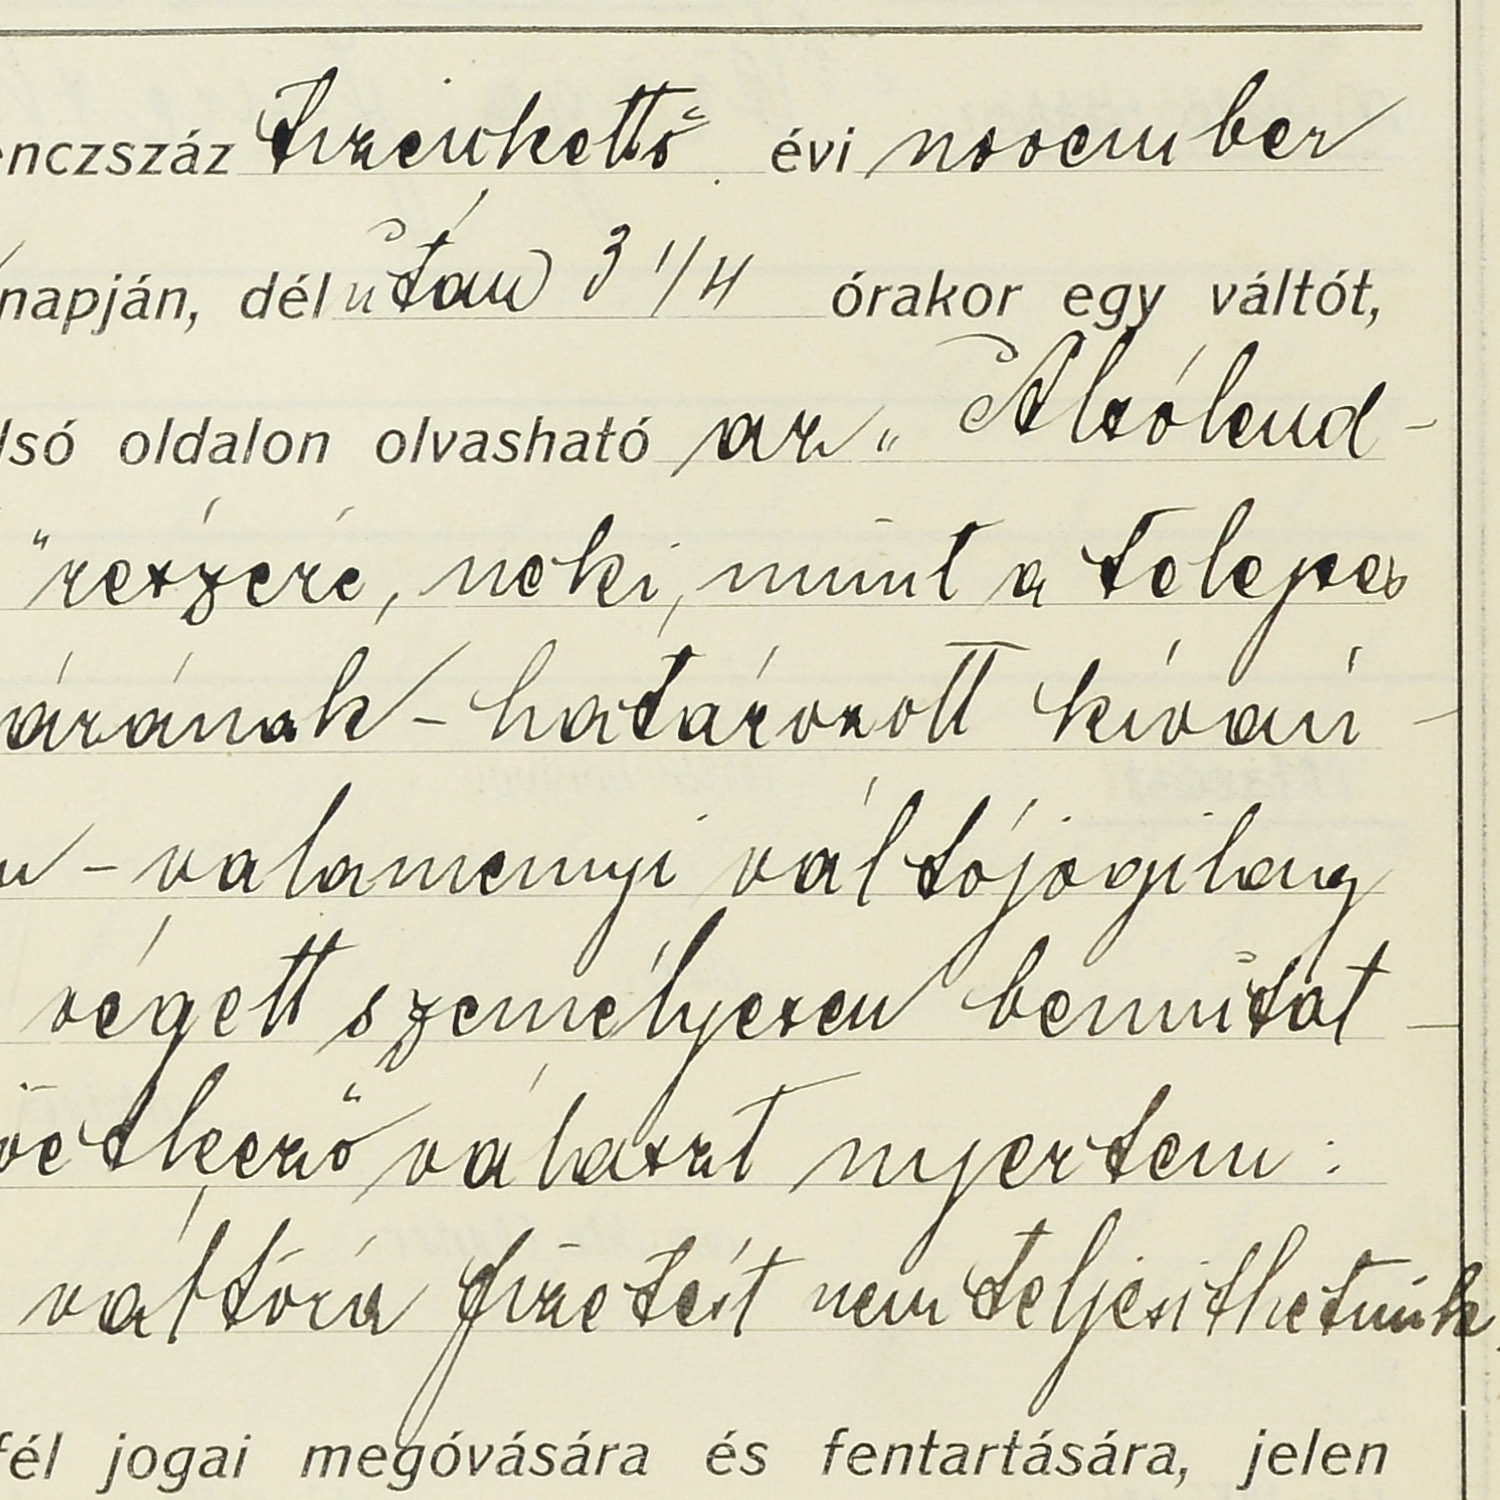 enczszáz tizenkettő évi november
napján, délután 3 1/4 órakor egy váltót,
lsó oldalon olvasható az „Alsólend-
" részére, neki, mint a telepes
árának - határozott kíván-
- valamenyi váltójogilag
végett személyesen bemutat-
vetkező választ nyertem :
váltóra fizetést nem teljesithetünk,
fél jogai megóvására és fentartására, jelen